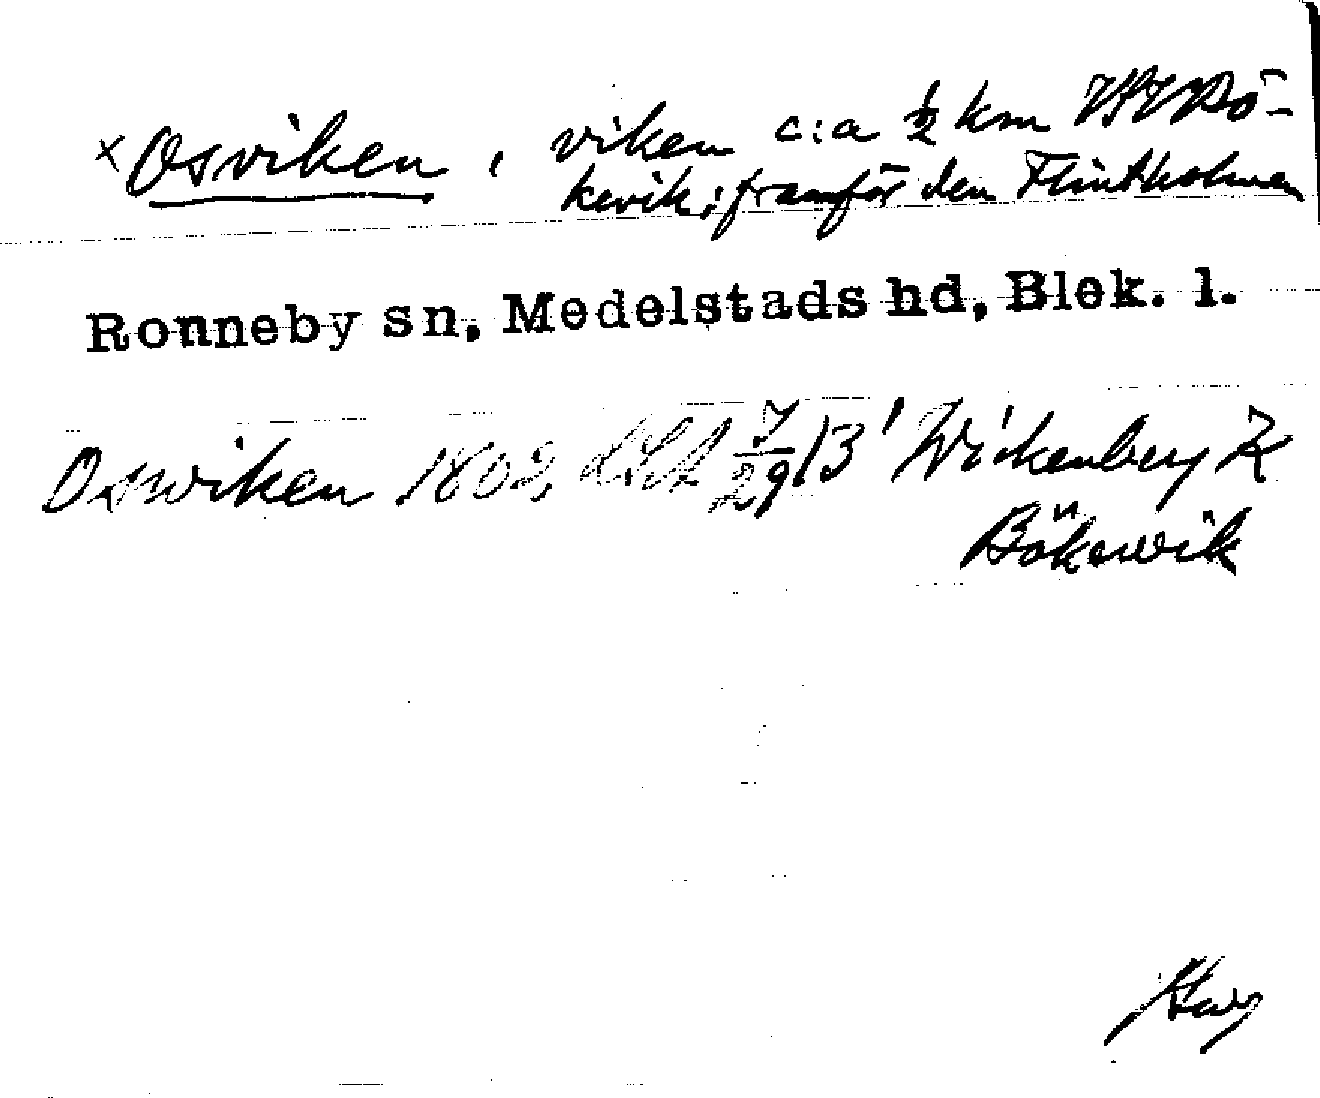 x Osviken, viken c:a ½ km VSV Bö-
kevik; framför den Flintholmen
Ronneby sn, Medelstads hd, Blek. l.
Osswiken 1802 LSA 7/29 13 ' Wickenberg K
Bökewik